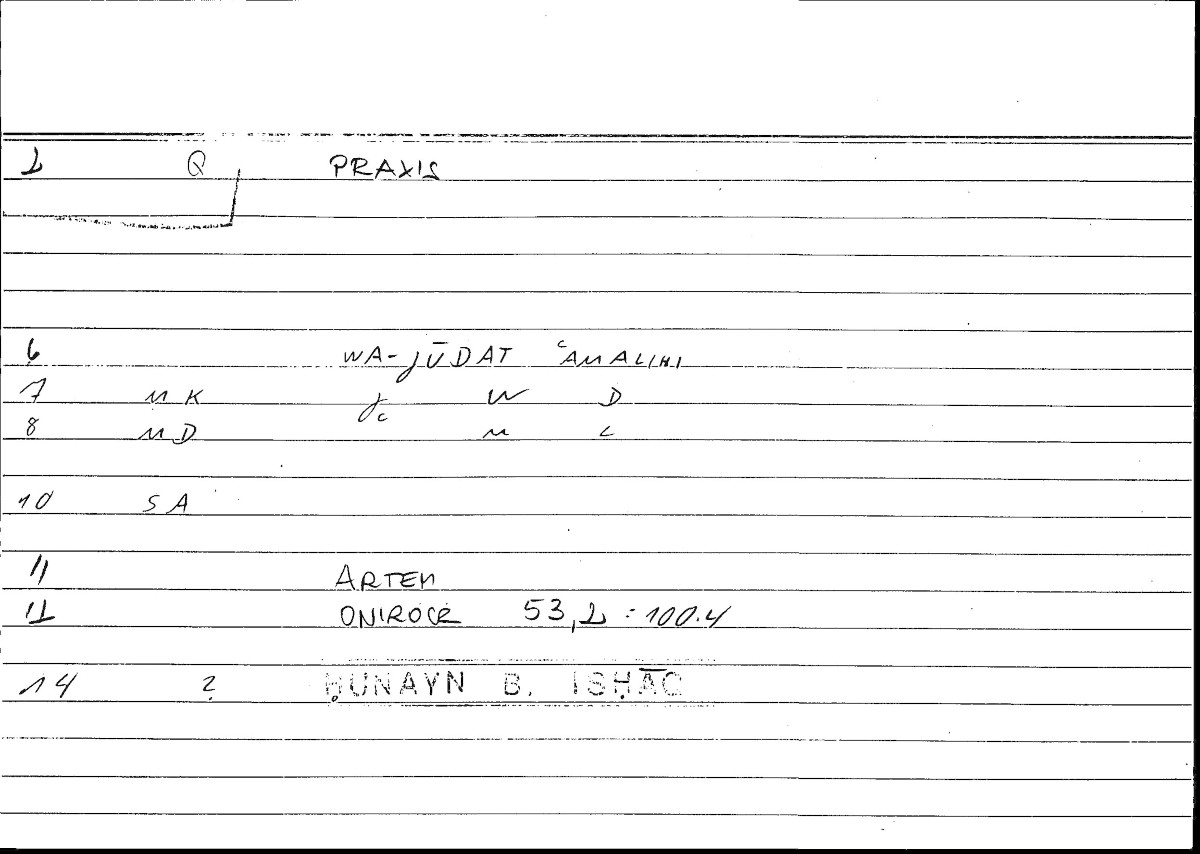 2 Q PRAXIS
6 WA-JŪDAT ʿAMALIHI
7 MK jc W D
8 MD M L
10 SA
11 ARTEM
12 ONIROCR 53,2 : 100.4
14 2 ḤUNAYN B. ISḤĀQ